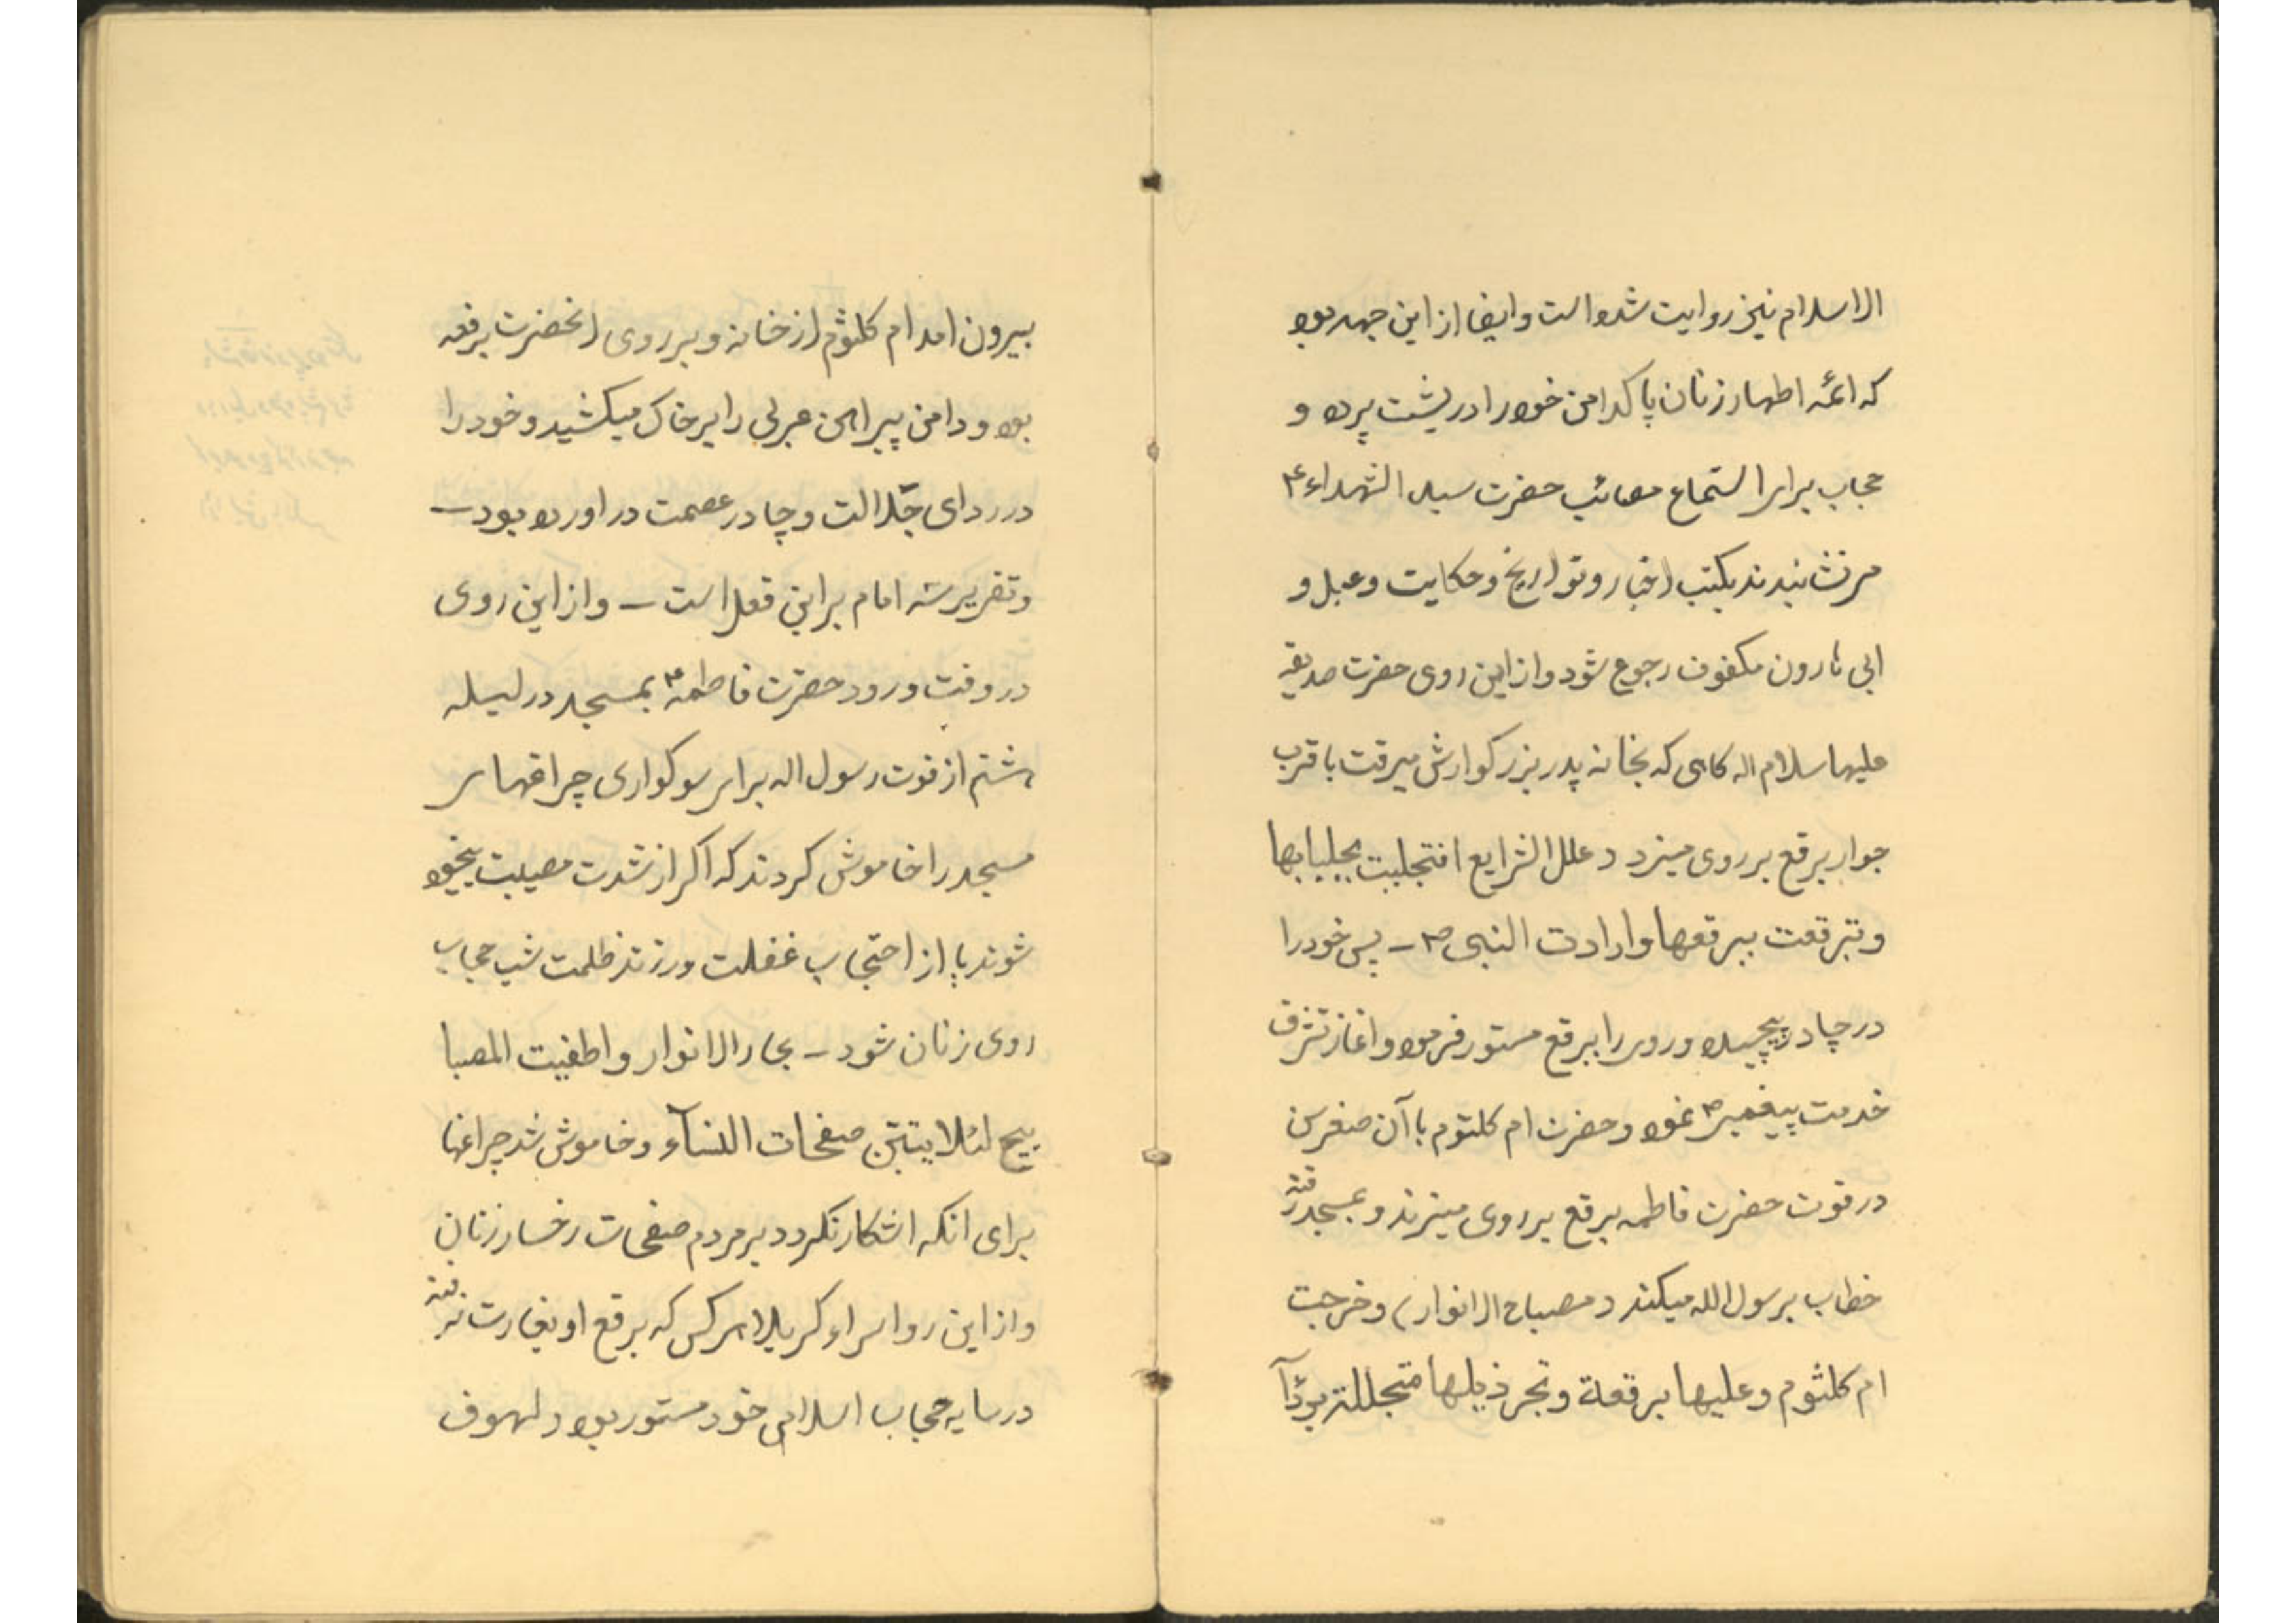 الاسلام نیز روایت شده است و ایضا از این جهه بوده
که ائمه اطهار زنان پاکدامن خود را در پشت پرده و
حجاب برای استماع مصائب حضرت سید الشهداء ع
می‌نشانیدند بکتب اخبار و تواریخ و حکایت دعبل و
ابی هارون مکفوف رجوع شود و از این روی حضرت صدیقه
علیها سلام اله گاهی که بخانه پدر بزرگوارش میرفت با قرب
جوار برقع بر روی میزد د علل الشرایع افتجلببت بجلبابها
و تبرقعت ببرقعها و ارادت النبی ص ـ پس خود را
در چادر پیچیده و روی را ببرقع مستور فرموده و اغاز تشرف
خدمت پیغمبر ص نموده و حضرت ام کلثوم با آن صغر سن
در فوت حضرت فاطمه برقع بر روی میزند و بمسجد رفته
خطاب برسول الله میکند د مصباح الانوار ) و خرجت
ام کلثوم و علیها برقعة و تجر ذیلها متجللة بردآ
بیرون امد ام کلثوم از خانه و بر روی انحضرت برقعه
بوده و دامن پیراهن عربی را بر خاک میکشید و خود را
در ردای جلالت و چادر عصمت در اورده بود ـ
و تقریر سه امام بر این فعل است ـ و از این روی
در وقت ورود حضرت فاطمه ع بمسجد در لیله
هشتم از فوت رسول اله برای سوگواری چراغهای
مسجد را خاموش کردند که اگر از شدت مصیبت بیخود
شوند یا از احتجاب غفلت ورزند ظلمت شب حجاب
روی زنان شود ـ بحار الانوار و اطفیت المصا
بیح لئلا یتبین صفحات النسآء و خاموش شد چراغها
برای انکه اشکار نگردد بر مردم صفحات رخسار زنان
و از این رو اسراء کربلا هر کس که برقع او بغارت نرفته
در سایه حجاب اسلامی خود مستور بوده د لهوف